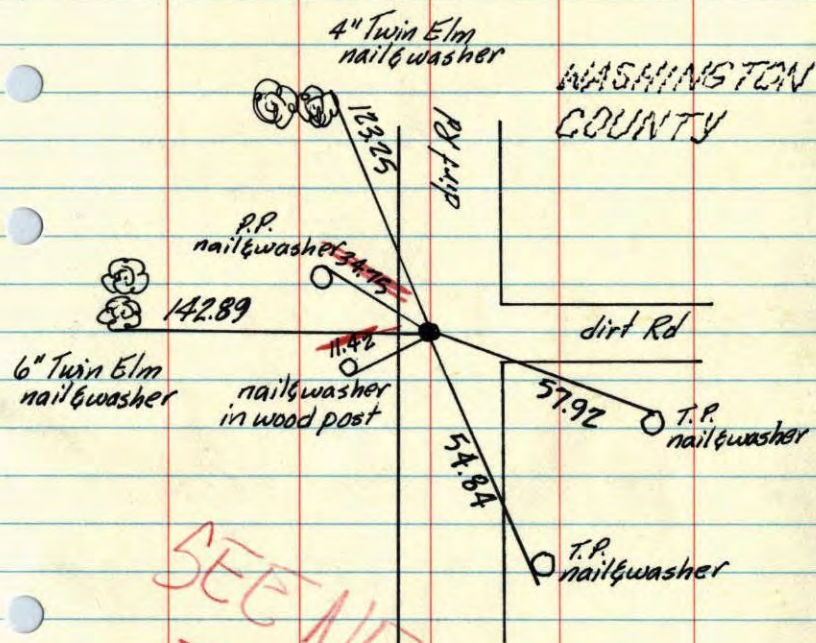 4" Twin Elm
nail&washer
WASHINGTON
COUNTY
123.25
dirt Rd
P.P.
nail&washer
34.75
142.89
11.42
dirt Rd
6" Twin Elm
nail&washer
nail&washer
in wood post
57.92
T.P.
nail&washer
54.84
T.P.
nail&washer
SEE